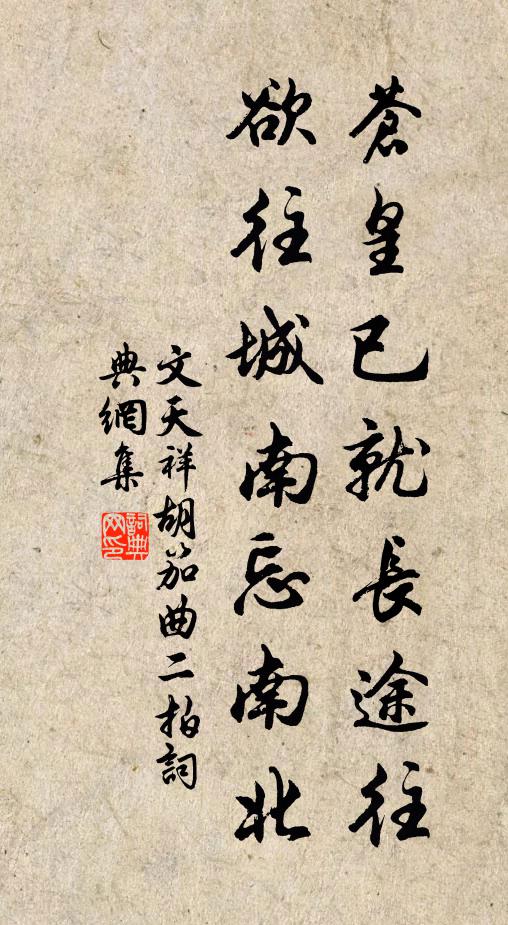 蒼皇已就長途往
欲往城南忘南北
文天祥胡笳曲二拍詞
典網集
詞典网印